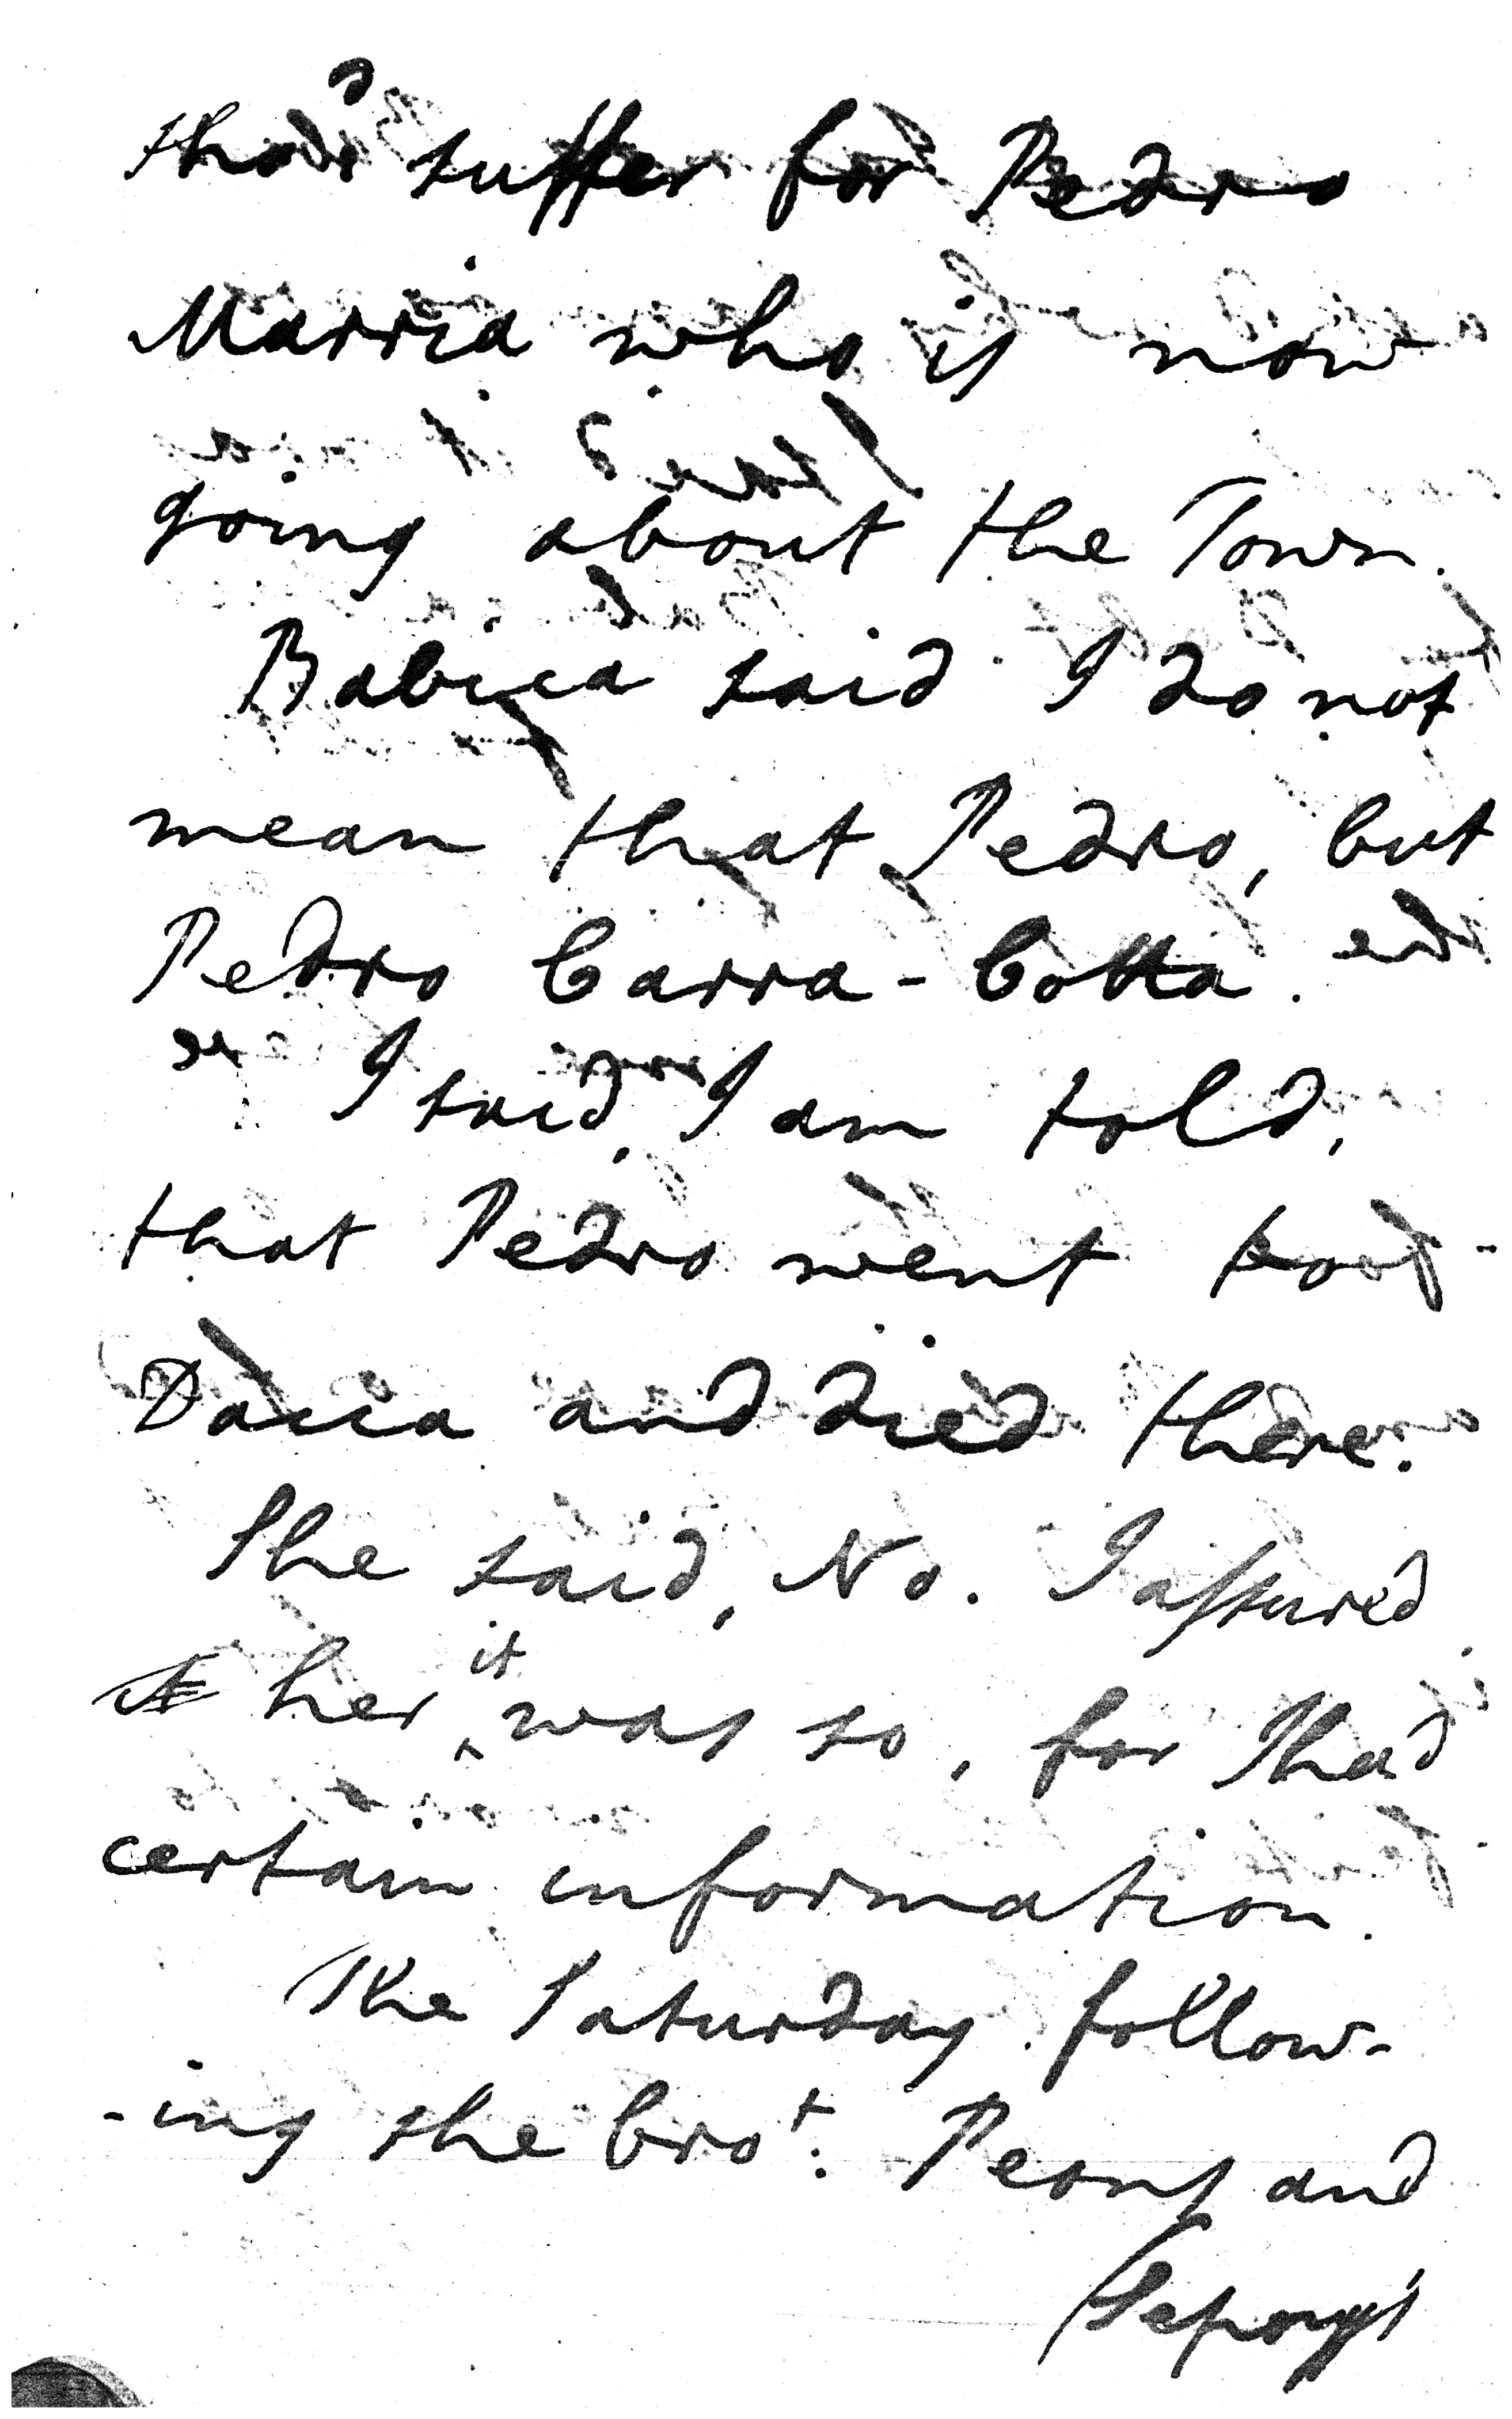 suffer for Pedro
Marria who is now
going about the Town.
Babica said I do not
mean that Pedro, but
Pedro Carra-Cotta.
I said, I am told,
that Pedro went to
Dacca and died there.
She said, No. I assured
it her it was so, for I had
certain information.
The Saturday follow-
-ing she bro.t Peons and
Sepoys